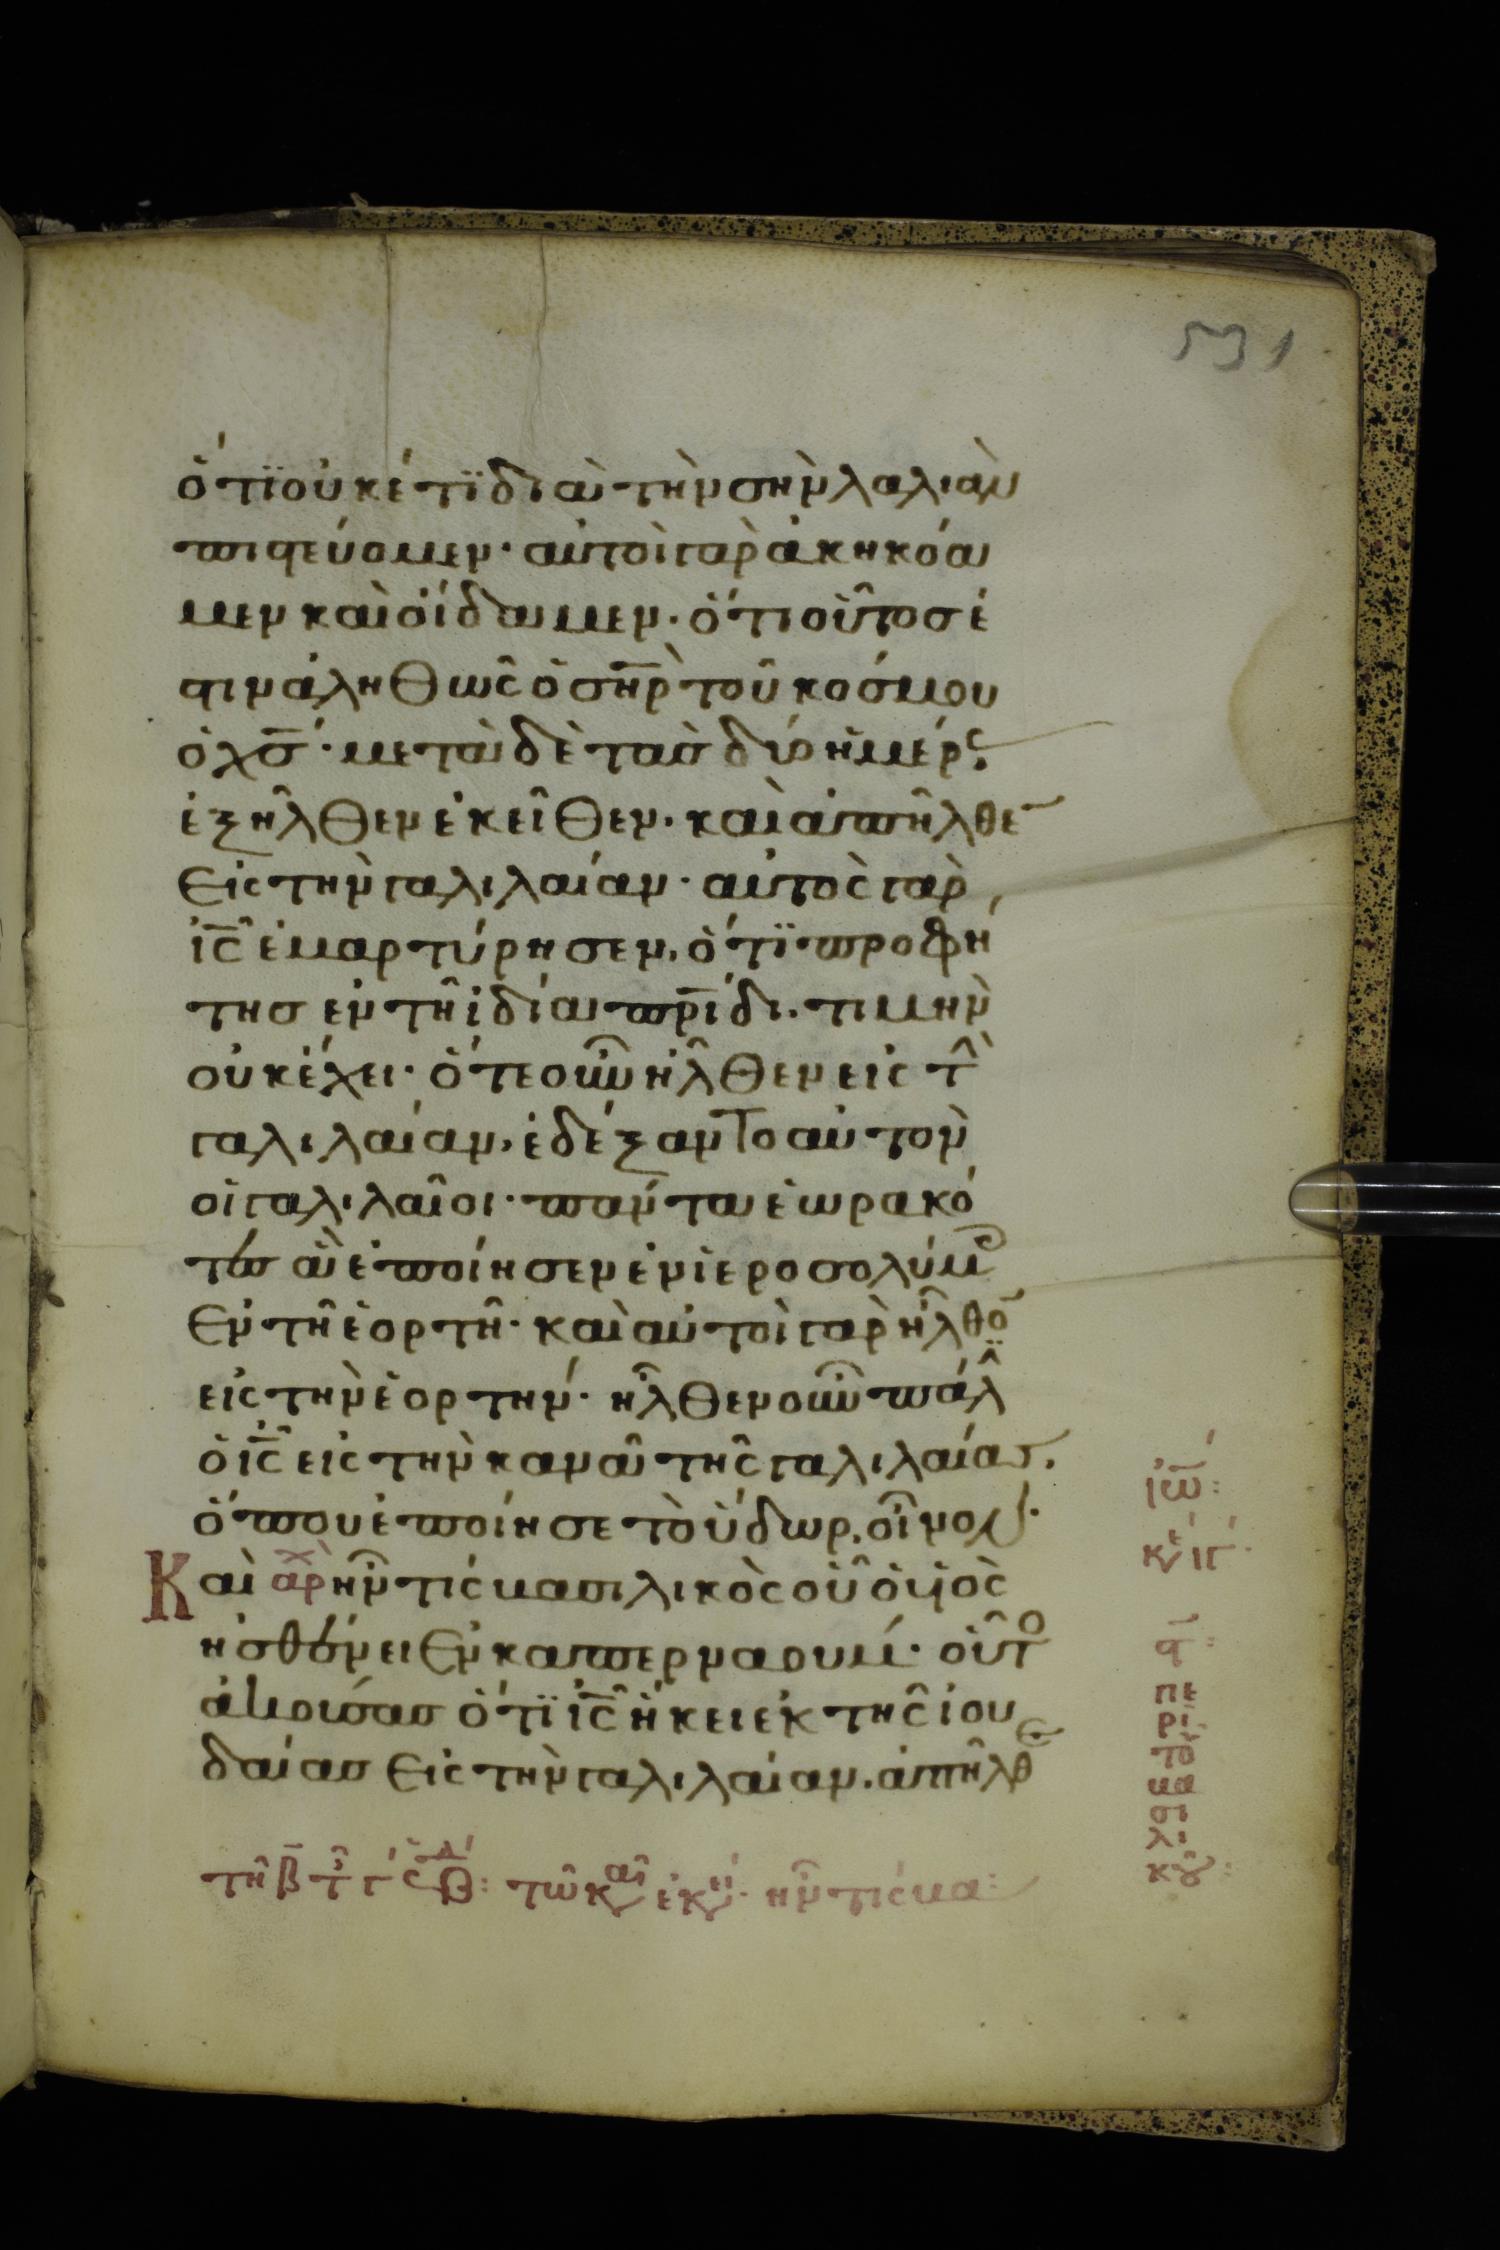 531
ὅτϊ οὐκέτϊ διὰ τὴν σὴν λαλιὰν
πιστεύομεν· αὐτοὶ γὰρ ἀκηκόα
μεν καὶ οἴδαμεν· ὅτι οὗτοσ ἐ
στιν ἀληθῶς ὁ σηρ τοῦ κόσμου
ὁ χσ· μετὰ δὲ τασ δύο ἡμέρς
ἐξῆλθεν ἐκεῖθεν· καὶ ἀπῆλθε
εἰς τὴν γαλιλαίαν· αὐτὸς γὰρ
ις ἐμαρτύρησεν, ὅτϊ προφή
τησ ἐν τῆ ἰδία πριδι· τιμὴν
οὐκ ἔχει· ὅτε οὖν ἦλθεν εἰς τ
γαλιλαίαν, ἐδέξαντο αὐτὸν
οἱ γαλιλαῖοι· πάντα ἑωρακό
τεσ ἃ ἐποίησεν ἐν ἱεροσολύμ
ἐν τῆ ἑορτῆ· καὶ αὐτοὶ γὰρ ἦλθο
εἰς τὴν ἑορτήν· ἦλθεν οὖν πάλ
ὁ ις εἰς τὴν κανᾶ τῆς γαλιλαίασ.
ὅπου ἐποίησε τὸ ὕδωρ, οἶνον·
Καὶ αρ ἦν τίς βασιλικὸς οὗ ὁ υἱὸς
ἠσθένει ἐν καπερναουμ· οὗτο
ἀκούσασ ὅτϊ ις ἥκει ἐκ τῆς ἰου
δαίασ εἰς τὴν γαλιλαίαν. ἀπῆλθε
ιω:
κ ιγ·
στ:
πε
ρι
το
βα
σι
λι
κου:
τῆ β τ γ ς β: τῶ κ αι ἐκ ει· ἦν τίς βα: